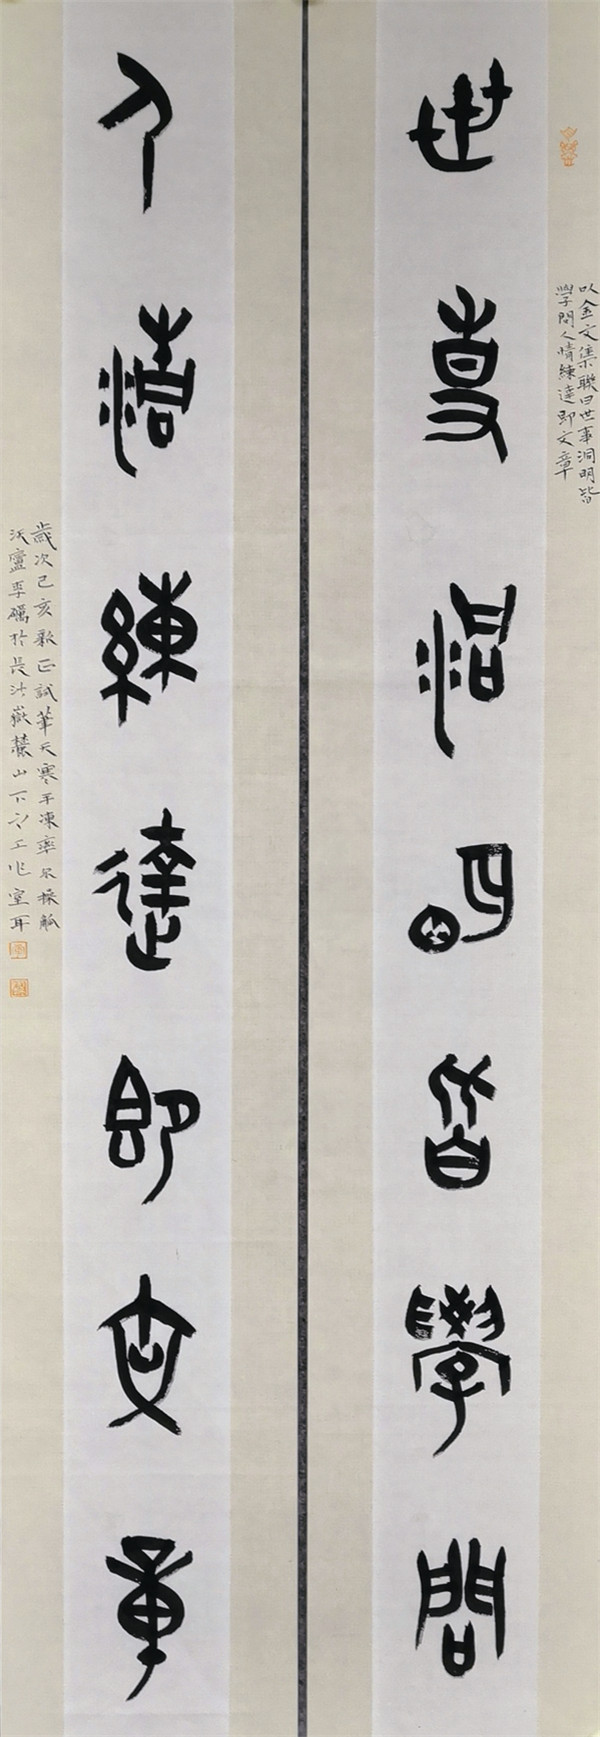 世事洞明皆學問
以金文集聯曰世事洞明皆
學問人情練達即文章
人情練達即文章
歲次己亥新正試筆天寒手凍率尔操觚
沃廬季礪於長沙嶽麓山下之工作室耳